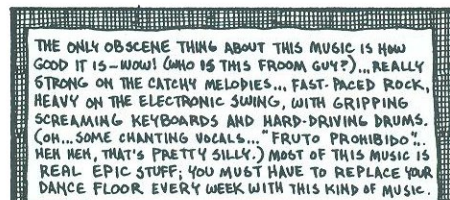 THE ONLY OBSCENE THING ABOUT THIS MUSIC IS HOW
GOOD IT IS-WOW! (WHO IS THIS FROOM GUY?)...REALLY
STRONG ON THE CATCHY MELODIES... FAST-PACED ROCK,
HEAVY ON THE ELECTRONIC SWING, WITH GRIPPING
SCREAMING KEYBOARDS AND HARD-DRIVING DRUMS.
(OH...SOME CHANTING VOCALS..."FRUTO PROHIBIDO"...
HEH HEH, THAT'S PRETTY SILLY.) MOST OF THIS MUSIC IS
REAL EPIC STUFF; YOU MUST HAVE TO REPLACE YOUR
DANCE FLOOR EVERY WEEK WITH THIS KIND OF MUSIC.